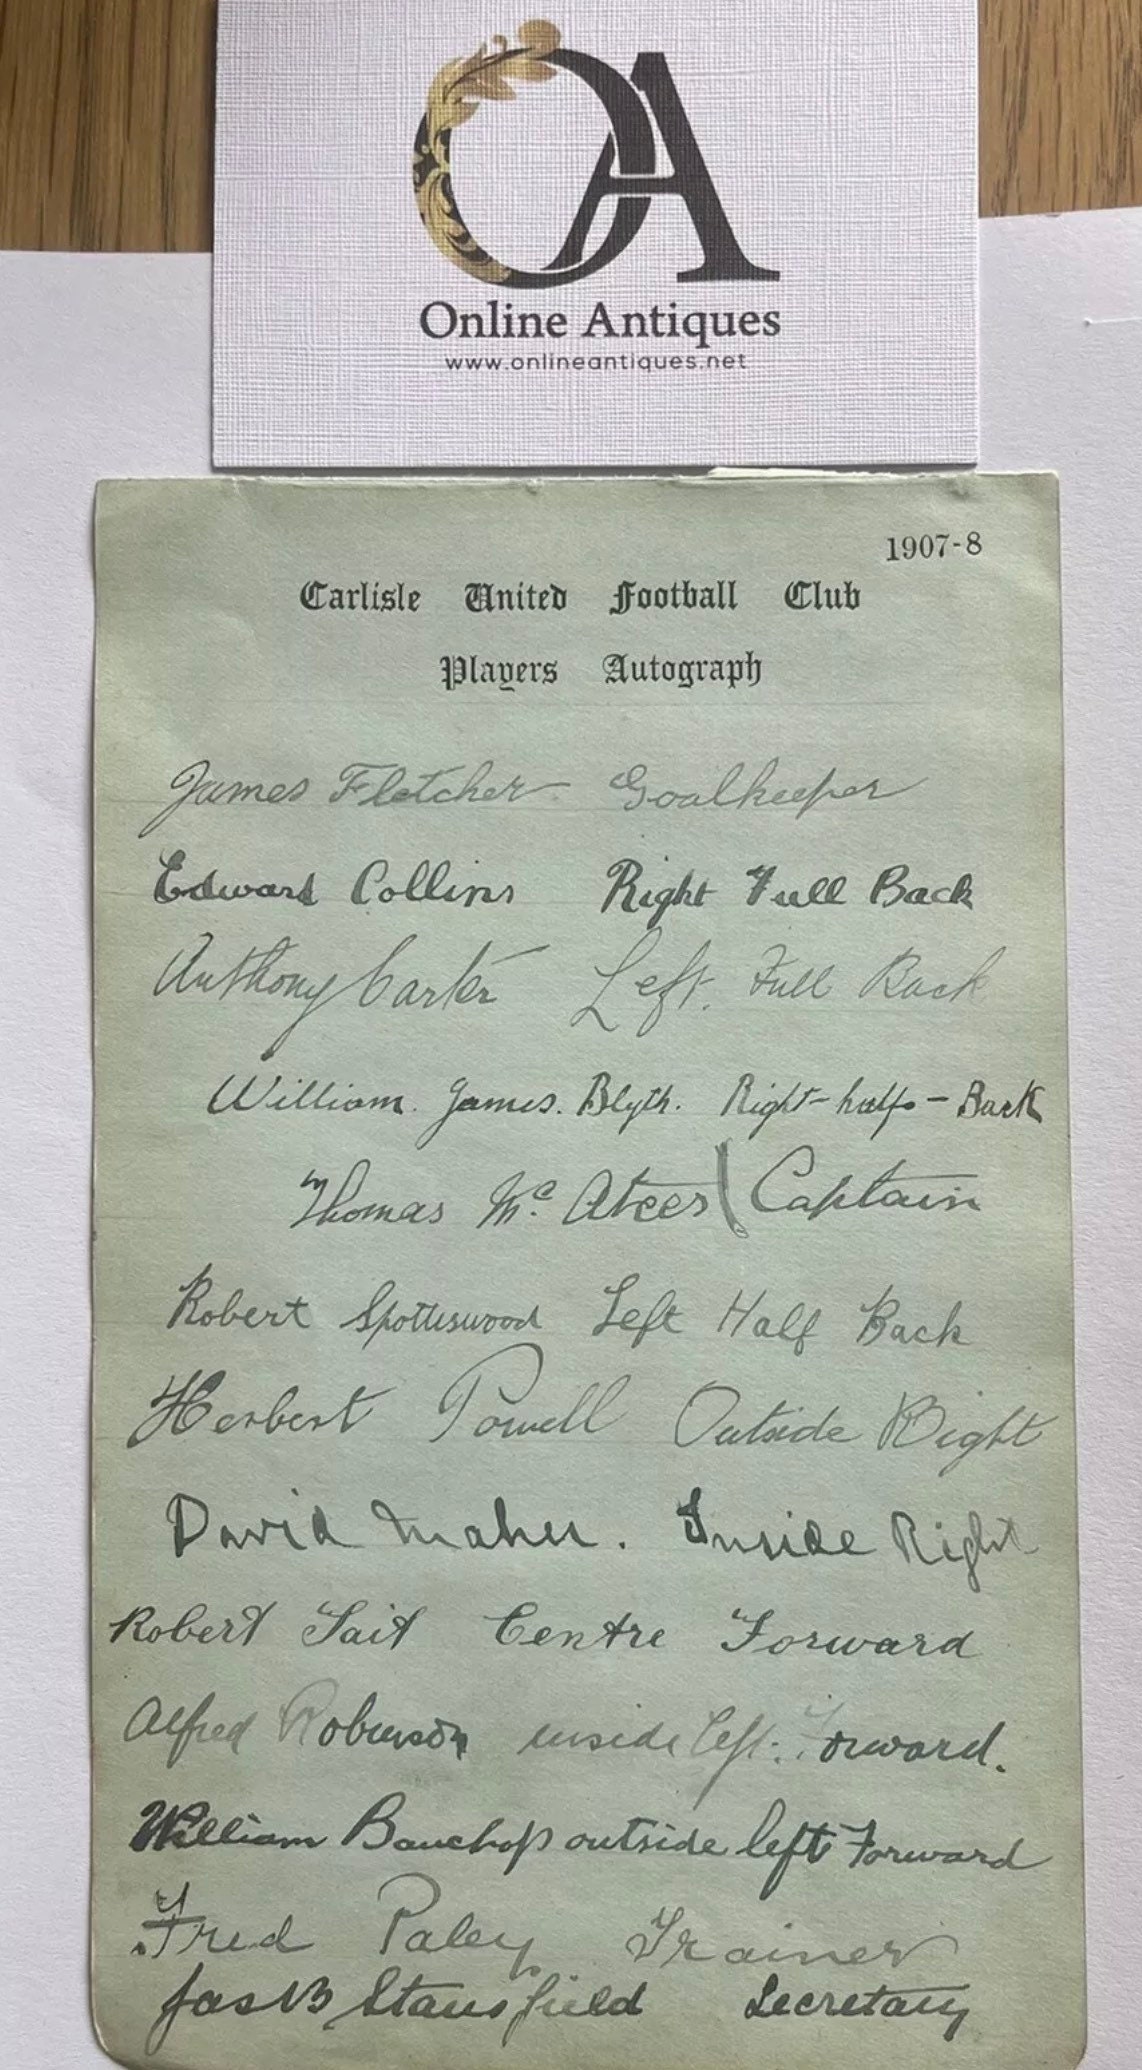 OA
Online Antiques
www.onlineantiques.net
1907-8
Carlisle United Football Club
Players Autograph
James Fletcher Goalkeeper
Edward Collins Right Full Back
Anthony Carter Left. Full Back
William. James. Blyth. Right-half-Back
Thomas Mc Ateer Captain
Robert Spottiswood Left Half Back
Herbert Powell Outside Right
David Maher. Inside Right
Robert Tait Centre Forward
Alfred Robinson inside left. Forward.
William Bauchop outside left Forward
Fred Paley Trainer
Jas B Stansfield Secretary